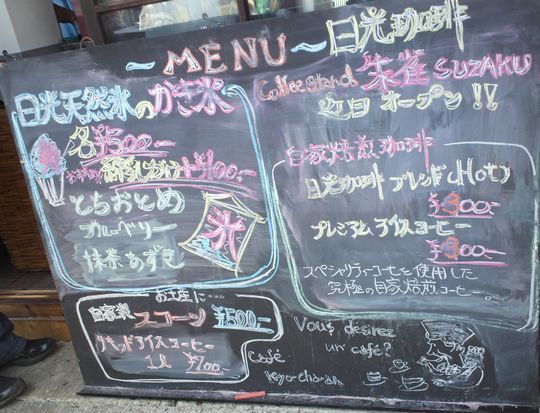 ~MENU~
日光珈琲
Coffee Stand 朱雀 SUZAKU
近日オープン!!
日光天然氷のかき氷
各¥500-
+¥100-
とちおとめ
ブルーベリー
抹茶あずき
氷
自家焙煎珈琲
日光珈琲 ブレンド(Hot)
¥300-
プレミアムアイスコーヒー
¥300-
スペシャリティーコーヒーを使用した
究極の自家焙煎コーヒー。
お土産に…
自家製 スコーン ¥500-
リキッドアイスコーヒー
1ℓ ¥700-
Vous désirez
un café?
café